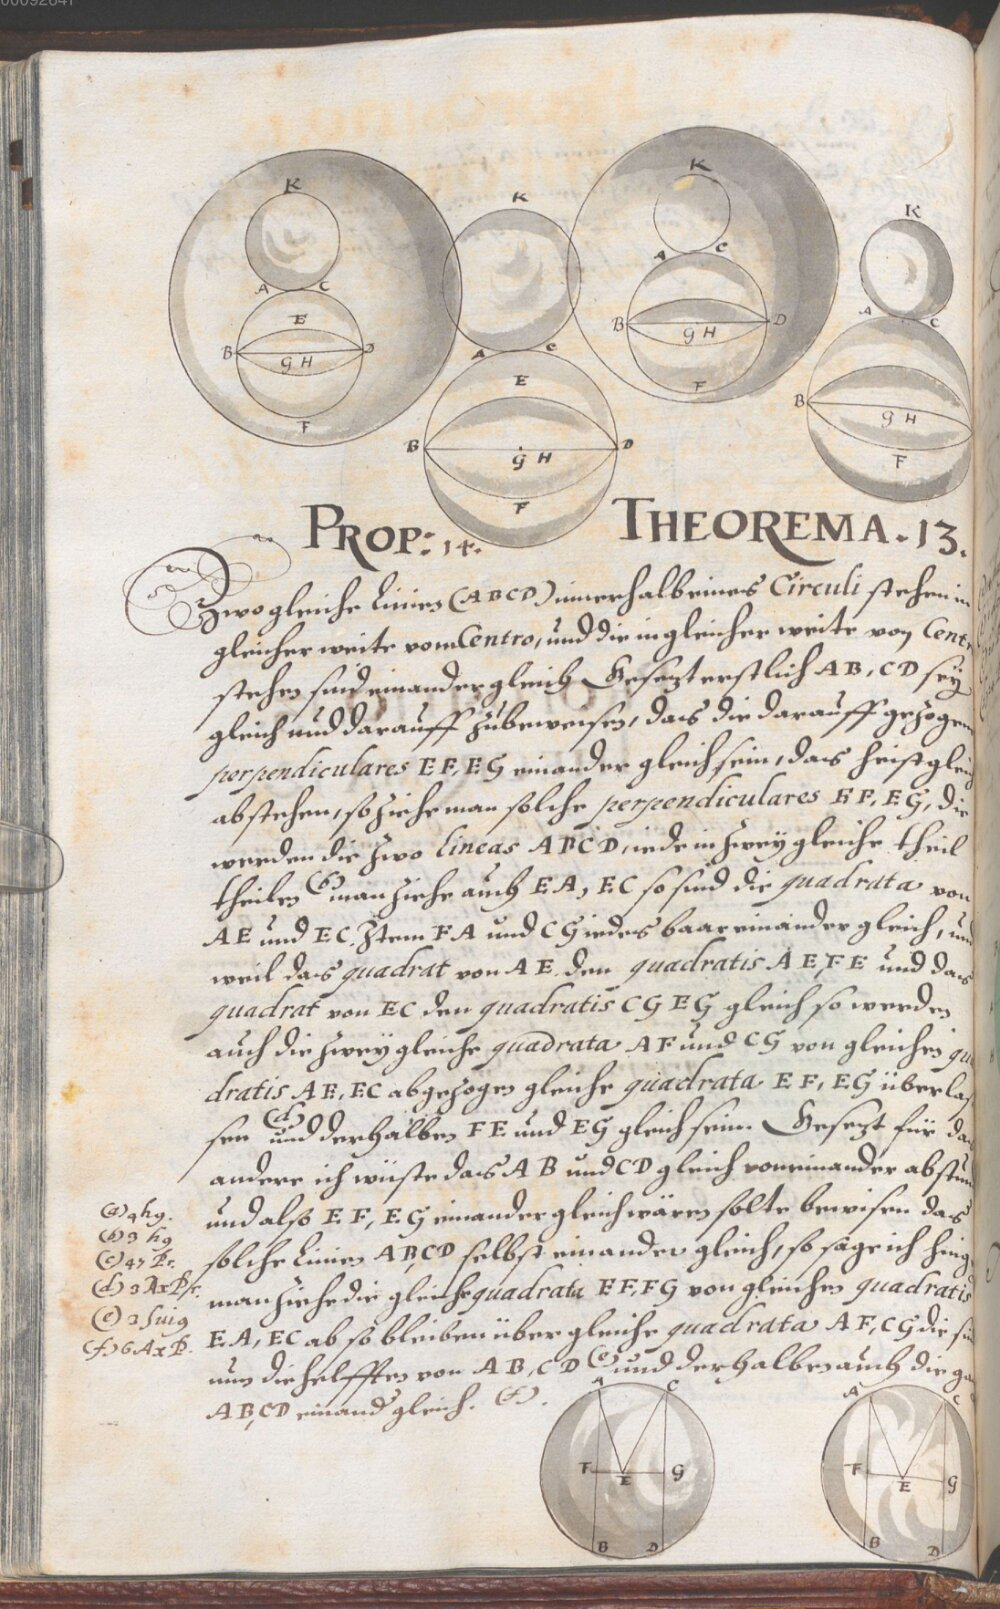 00092641
K
K
K
K
A C
E
B D
G H
F
A C
E
B D
G H
F
A C
B D
G H
F
A C
B
G H
F
PROP: 14. THEOREMA. 13.
Zwo gleiche Linien (ABCD) innerhalb eines Circuli stehen in
gleicher weite vom Centro, und die in gleicher weite von Cent
stehen sind einander gleich. Gesezt erstlich AB, CD sey
gleich und darauff zubeweisen, das die darauff gezogen
perpendiculares EF, EG einander gleich sein, das heist gleich
abstehen, so ziehe man solche perpendiculares EF, EG, die
werden die zwo lineas ABCD, iede in zwey gleiche theil
theilen (b) man ziehe auch EA, EC so sind die quadrata von
AE und EC. Item FA und CG iedes baar einander gleich, und
weil das quadrat von AE den quadratis AE, FE und das
quadrat von EC den quadratis CG EG gleich so werden
auch die zwey gleiche quadrata AF und CG von gleichen qu
dratis AE, EC abgezogen gleiche quadrata EF, EG überlas
sen (d) und derhalben FE und EG gleich sein. Gesezt für das
andere ich wüste das AB und CD gleich voneinander abstun
und also EF, EG einander gleich wären solte beweisen das
solche Linien AB, CD selbst einander gleich, so sage ich hing
man ziehe die gleiche quadrata EF, FG von gleichen quadratis
EA, EC ab so bleiben über gleiche quadrata AF, CG die si
nun die helfften von AB, CD (e) und derhalben auch die ga
AB, CD einand gleich. (f).
(a) 4 hg.
(b) 3 hg
(c) 47 Pr.
(d) 3 AxPr.
(e) 2 huig
(f) 6 AxP.
A C
F E G
B D
A C
F E G
B D